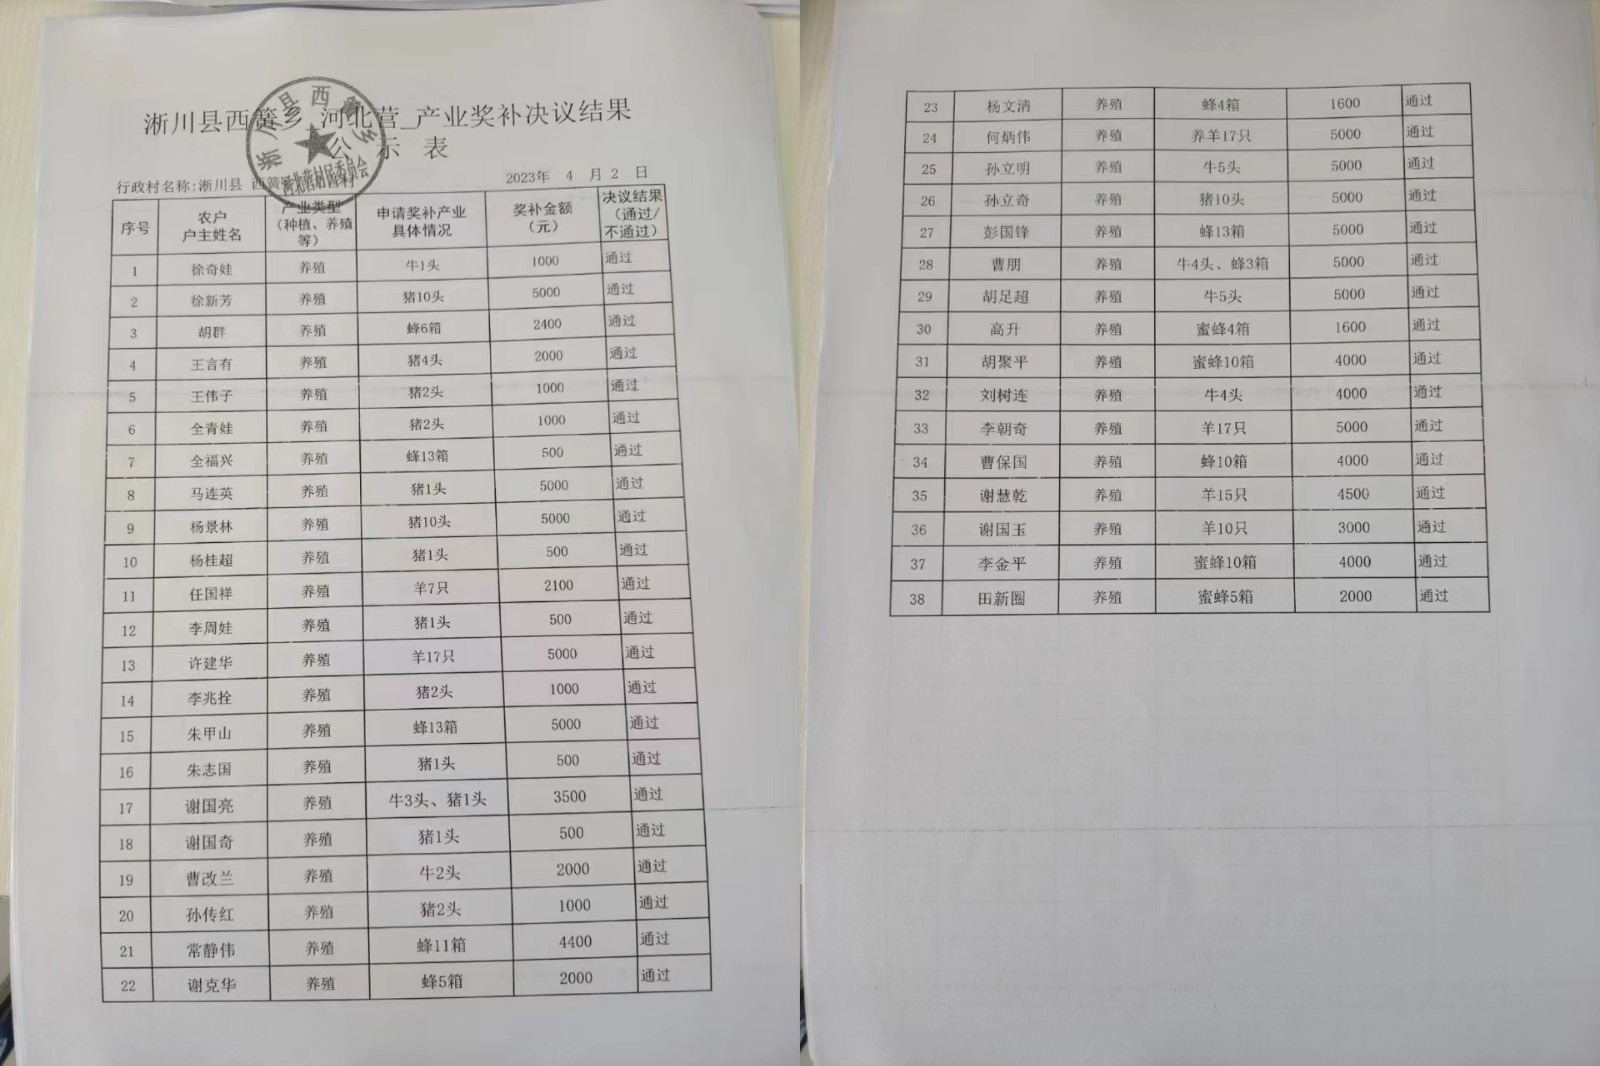 淅川县西簧乡 河北营_产业奖补决议结果
公 示 表
行政村名称:淅川县 西簧
2023年 4 月 2 日
序号 农户户主姓名 产业类型（种植、养殖等） 申请奖补产业具体情况 奖补金额（元） 决议结果（通过/不通过）
1 徐奇娃 养殖 牛1头 1000 通过
2 徐新芳 养殖 猪10头 5000 通过
3 胡群 养殖 蜂6箱 2400 通过
4 王言有 养殖 猪4头 2000 通过
5 王伟子 养殖 猪2头 1000 通过
6 全青娃 养殖 猪2头 1000 通过
7 全福兴 养殖 蜂13箱 500 通过
8 马连英 养殖 猪1头 5000 通过
9 杨景林 养殖 猪10头 5000 通过
10 杨桂超 养殖 猪1头 500 通过
11 任国祥 养殖 羊7只 2100 通过
12 李周娃 养殖 猪1头 500 通过
13 许建华 养殖 羊17只 5000 通过
14 李兆拴 养殖 猪2头 1000 通过
15 朱甲山 养殖 蜂13箱 5000 通过
16 朱志国 养殖 猪1头 500 通过
17 谢国亮 养殖 牛3头、猪1头 3500 通过
18 谢国奇 养殖 猪1头 500 通过
19 曹改兰 养殖 牛2头 2000 通过
20 孙传红 养殖 猪2头 1000 通过
21 常静伟 养殖 蜂11箱 4400 通过
22 谢克华 养殖 蜂5箱 2000 通过
23 杨文清 养殖 蜂4箱 1600 通过
24 何炳伟 养殖 养羊17只 5000 通过
25 孙立明 养殖 牛5头 5000 通过
26 孙立奇 养殖 猪10头 5000 通过
27 彭国锋 养殖 蜂13箱 5000 通过
28 曹朋 养殖 牛4头、蜂3箱 5000 通过
29 胡足超 养殖 牛5头 5000 通过
30 高升 养殖 蜜蜂4箱 1600 通过
31 胡聚平 养殖 蜜蜂10箱 4000 通过
32 刘树连 养殖 牛4头 4000 通过
33 李朝奇 养殖 羊17只 5000 通过
34 曹保国 养殖 蜂10箱 4000 通过
35 谢慧乾 养殖 羊15只 4500 通过
36 谢国玉 养殖 羊10只 3000 通过
37 李金平 养殖 蜜蜂10箱 4000 通过
38 田新圈 养殖 蜜蜂5箱 2000 通过